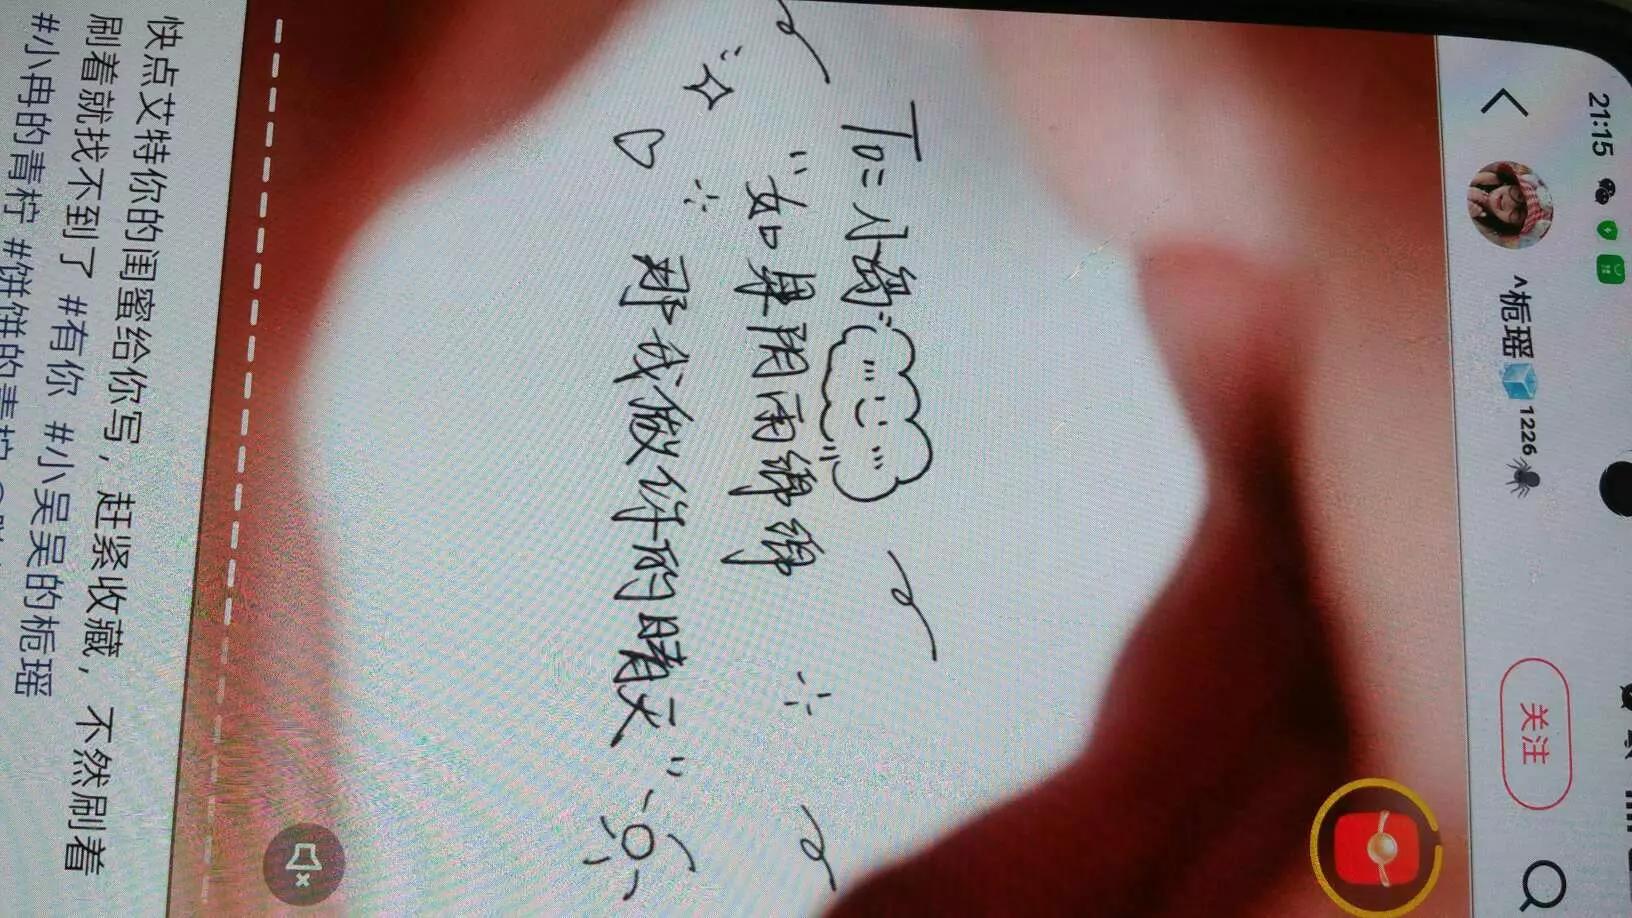 21:15
^栀瑶🧊1226🕷
关注
To=小
"如果阴雨绵绵
那我做你的晴天"
快点艾特你的闺蜜给你写，赶紧收藏，不然刷着
刷着就找不到了 #有你 #小吴吴的栀瑶
#小冉的青柠 #饼饼的青柠